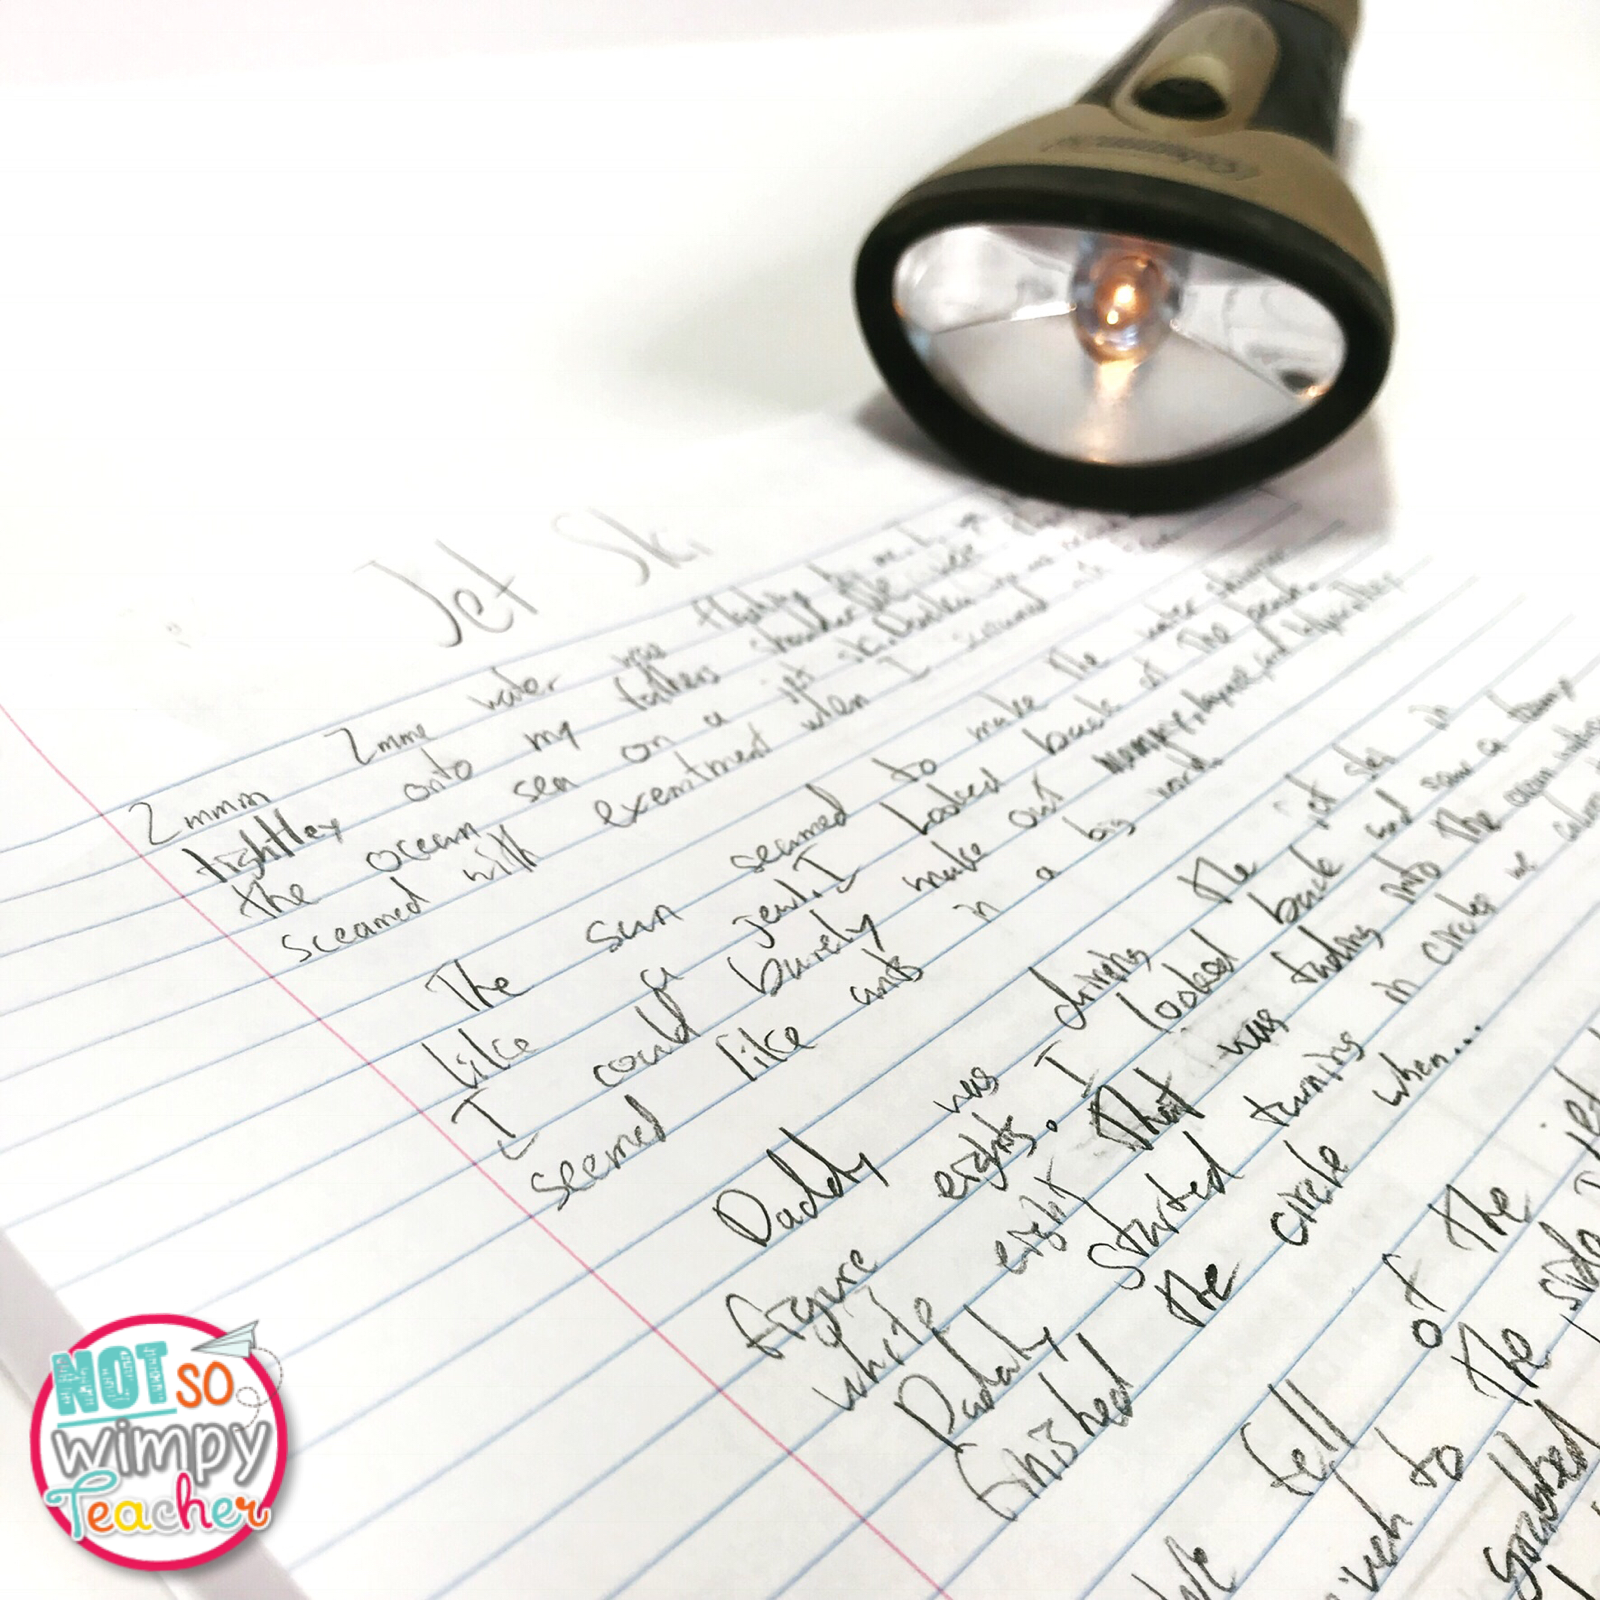 Jet Ski
Zmmm Zmmm water was flashing by me.
tightley onto my fathers shoulder. We were
the ocean sea on a jet ski.
sceamed with exentment when I
The sun seamed to make the water shimmer
like a jewl. I Looked back at the beach.
I could barely make out mommy, layne, and
seemed like ants in a big world.
Daddy was driving the jet sky in
figure eights. I looked back and saw a
white eight that was fading into the ocean
Daddy started turning in circles we
finished the circle when...
We fell of the jet
to the side
grabbed
NOT SO
wimpy
Teacher